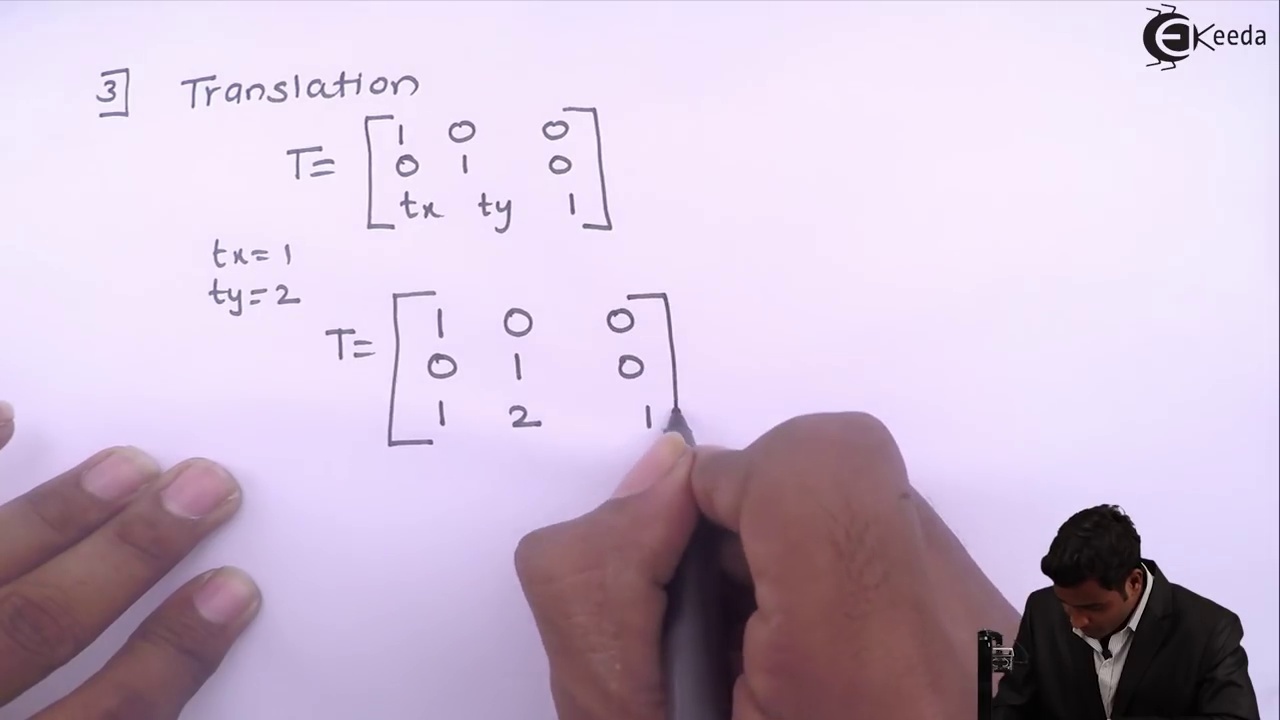 EKeeda
3] Translation
T= [1 0 0
0 1 0
tx ty 1]
tx=1
ty=2
T= [1 0 0
0 1 0
1 2 1]